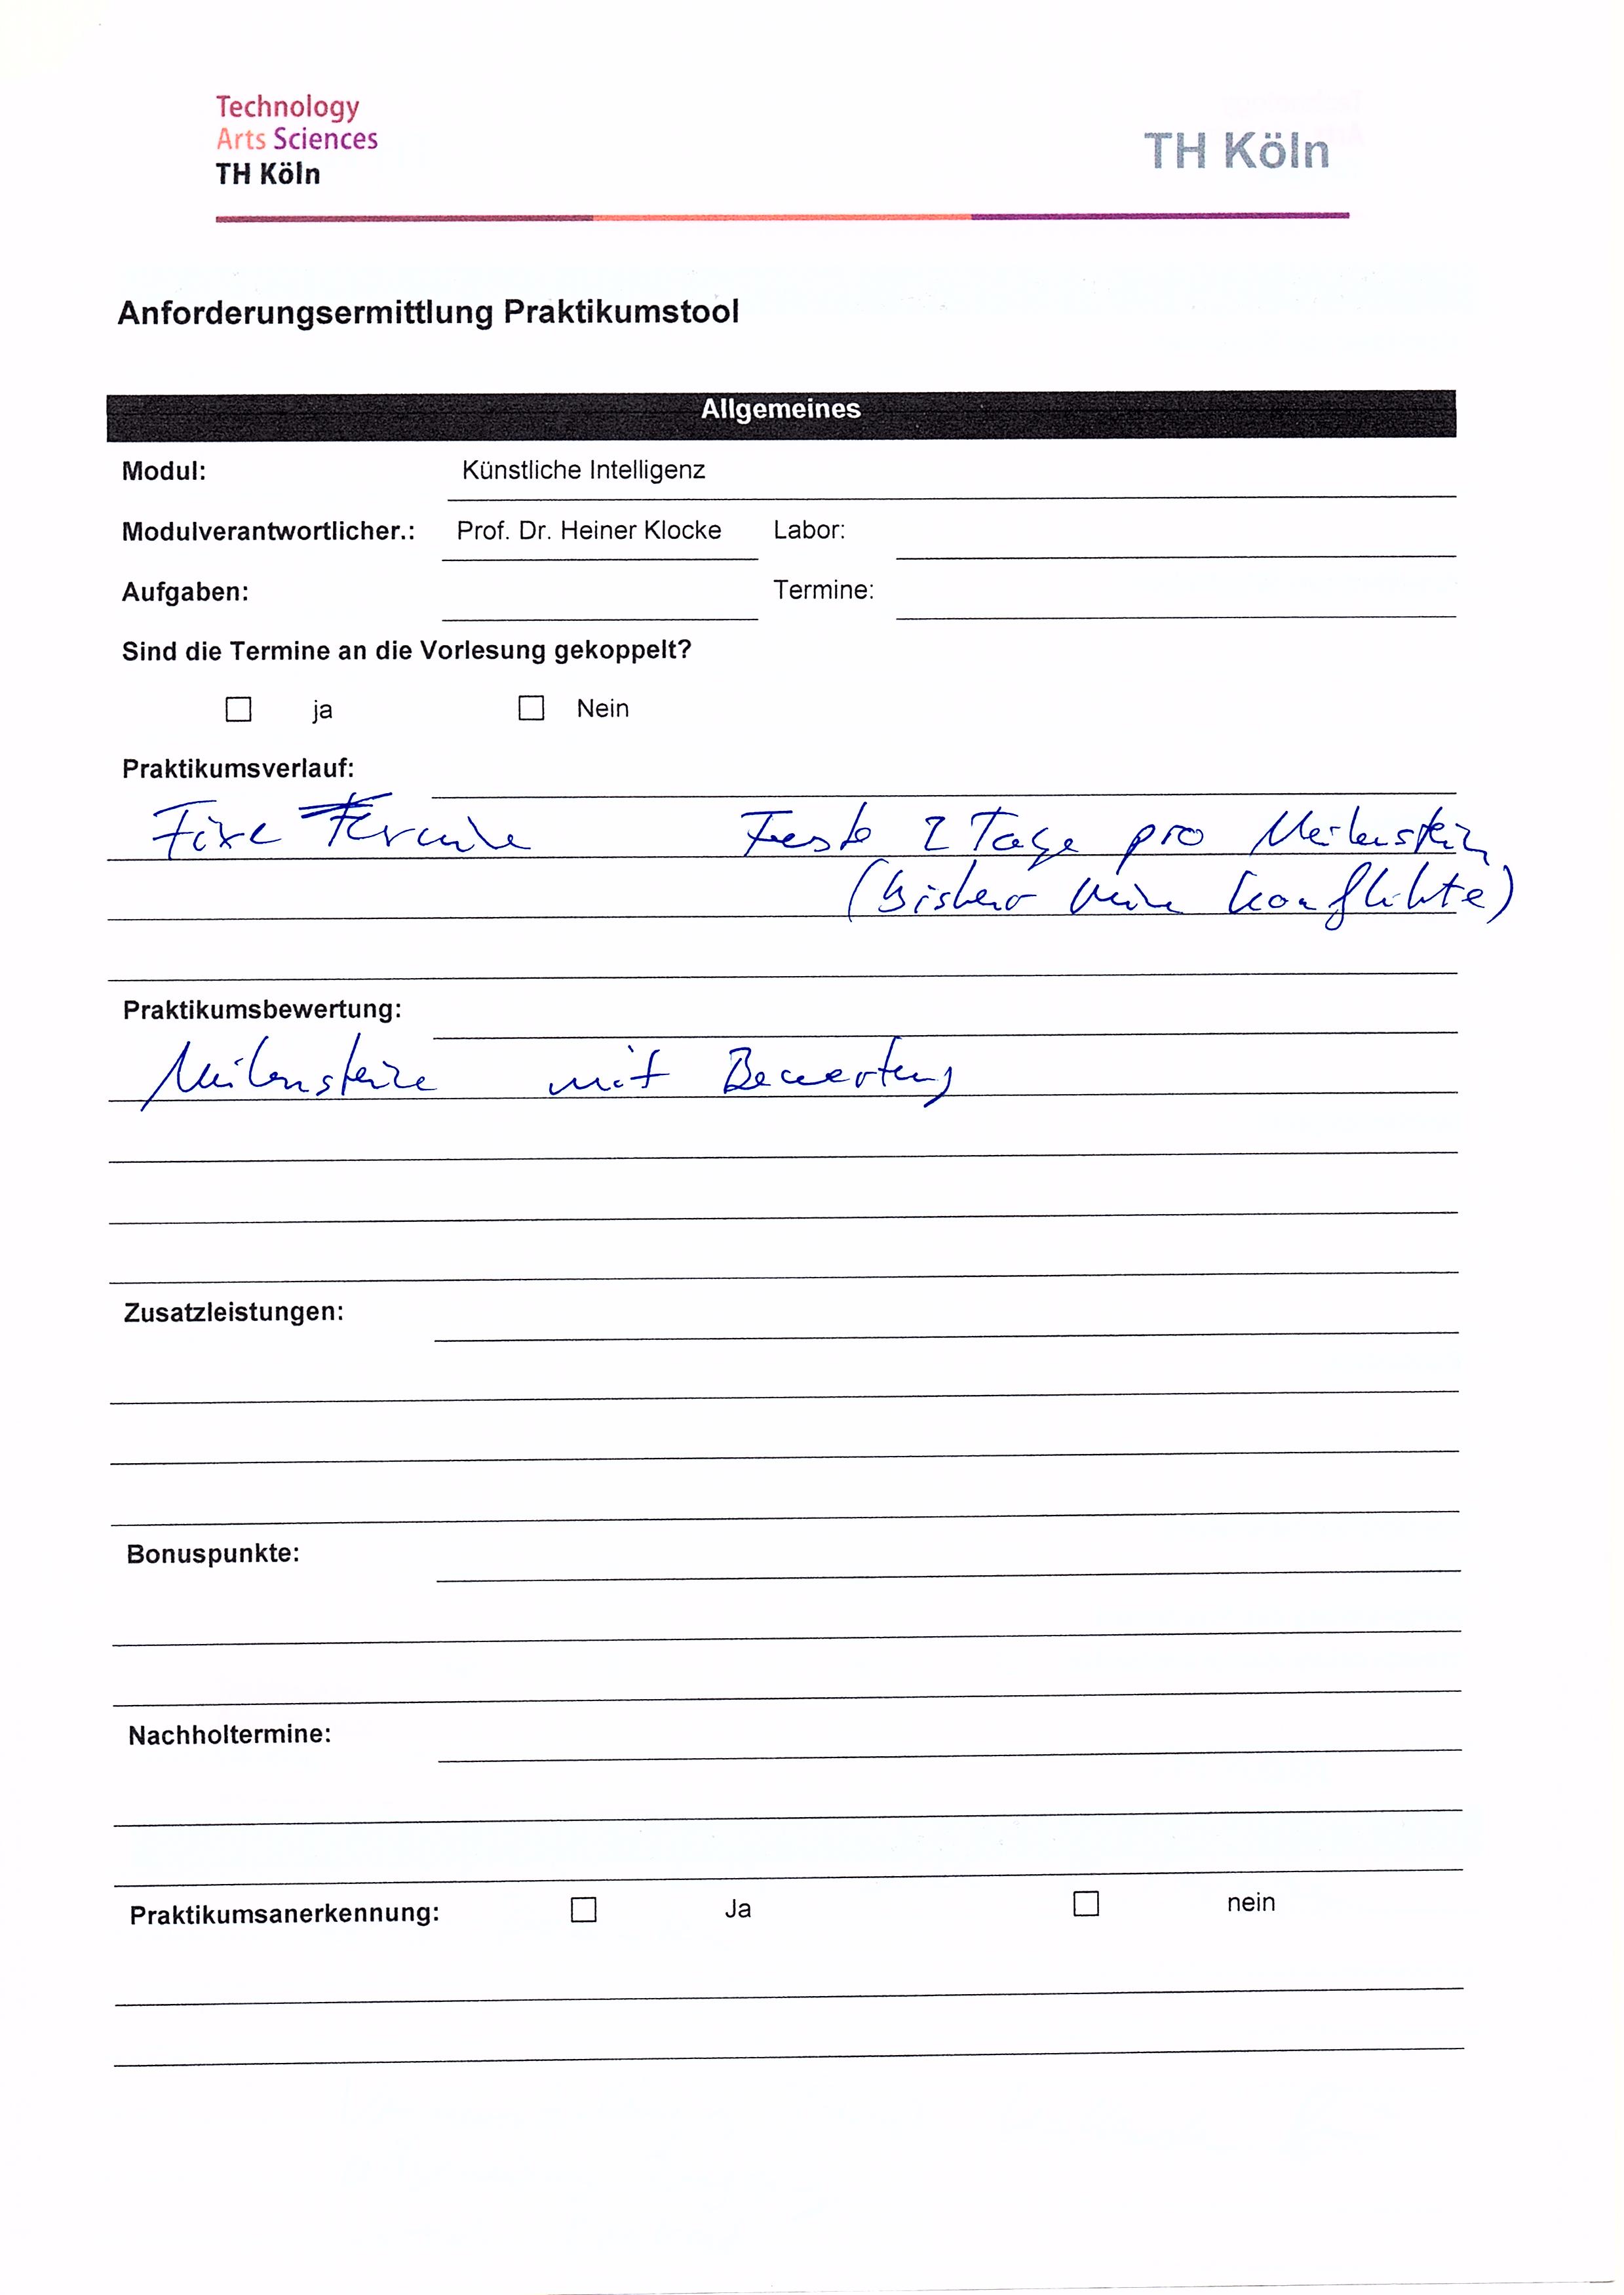 Technology
Arts Sciences
TH Köln
TH Köln
Anforderungsermittlung Praktikumstool
Allgemeines
Modul: Künstliche Intelligenz
Modulverantwortlicher.: Prof. Dr. Heiner Klocke Labor:
Aufgaben: Termine:
Sind die Termine an die Vorlesung gekoppelt?
☐ ja ☐ Nein
Praktikumsverlauf:
Fixe Termine Feste 2 Tage pro Meilenstein
(bisher keine Konflikte)
Praktikumsbewertung:
Meilensteine mit Bewertung
Zusatzleistungen:
Bonuspunkte:
Nachholtermine:
Praktikumsanerkennung: ☐ Ja ☐ nein